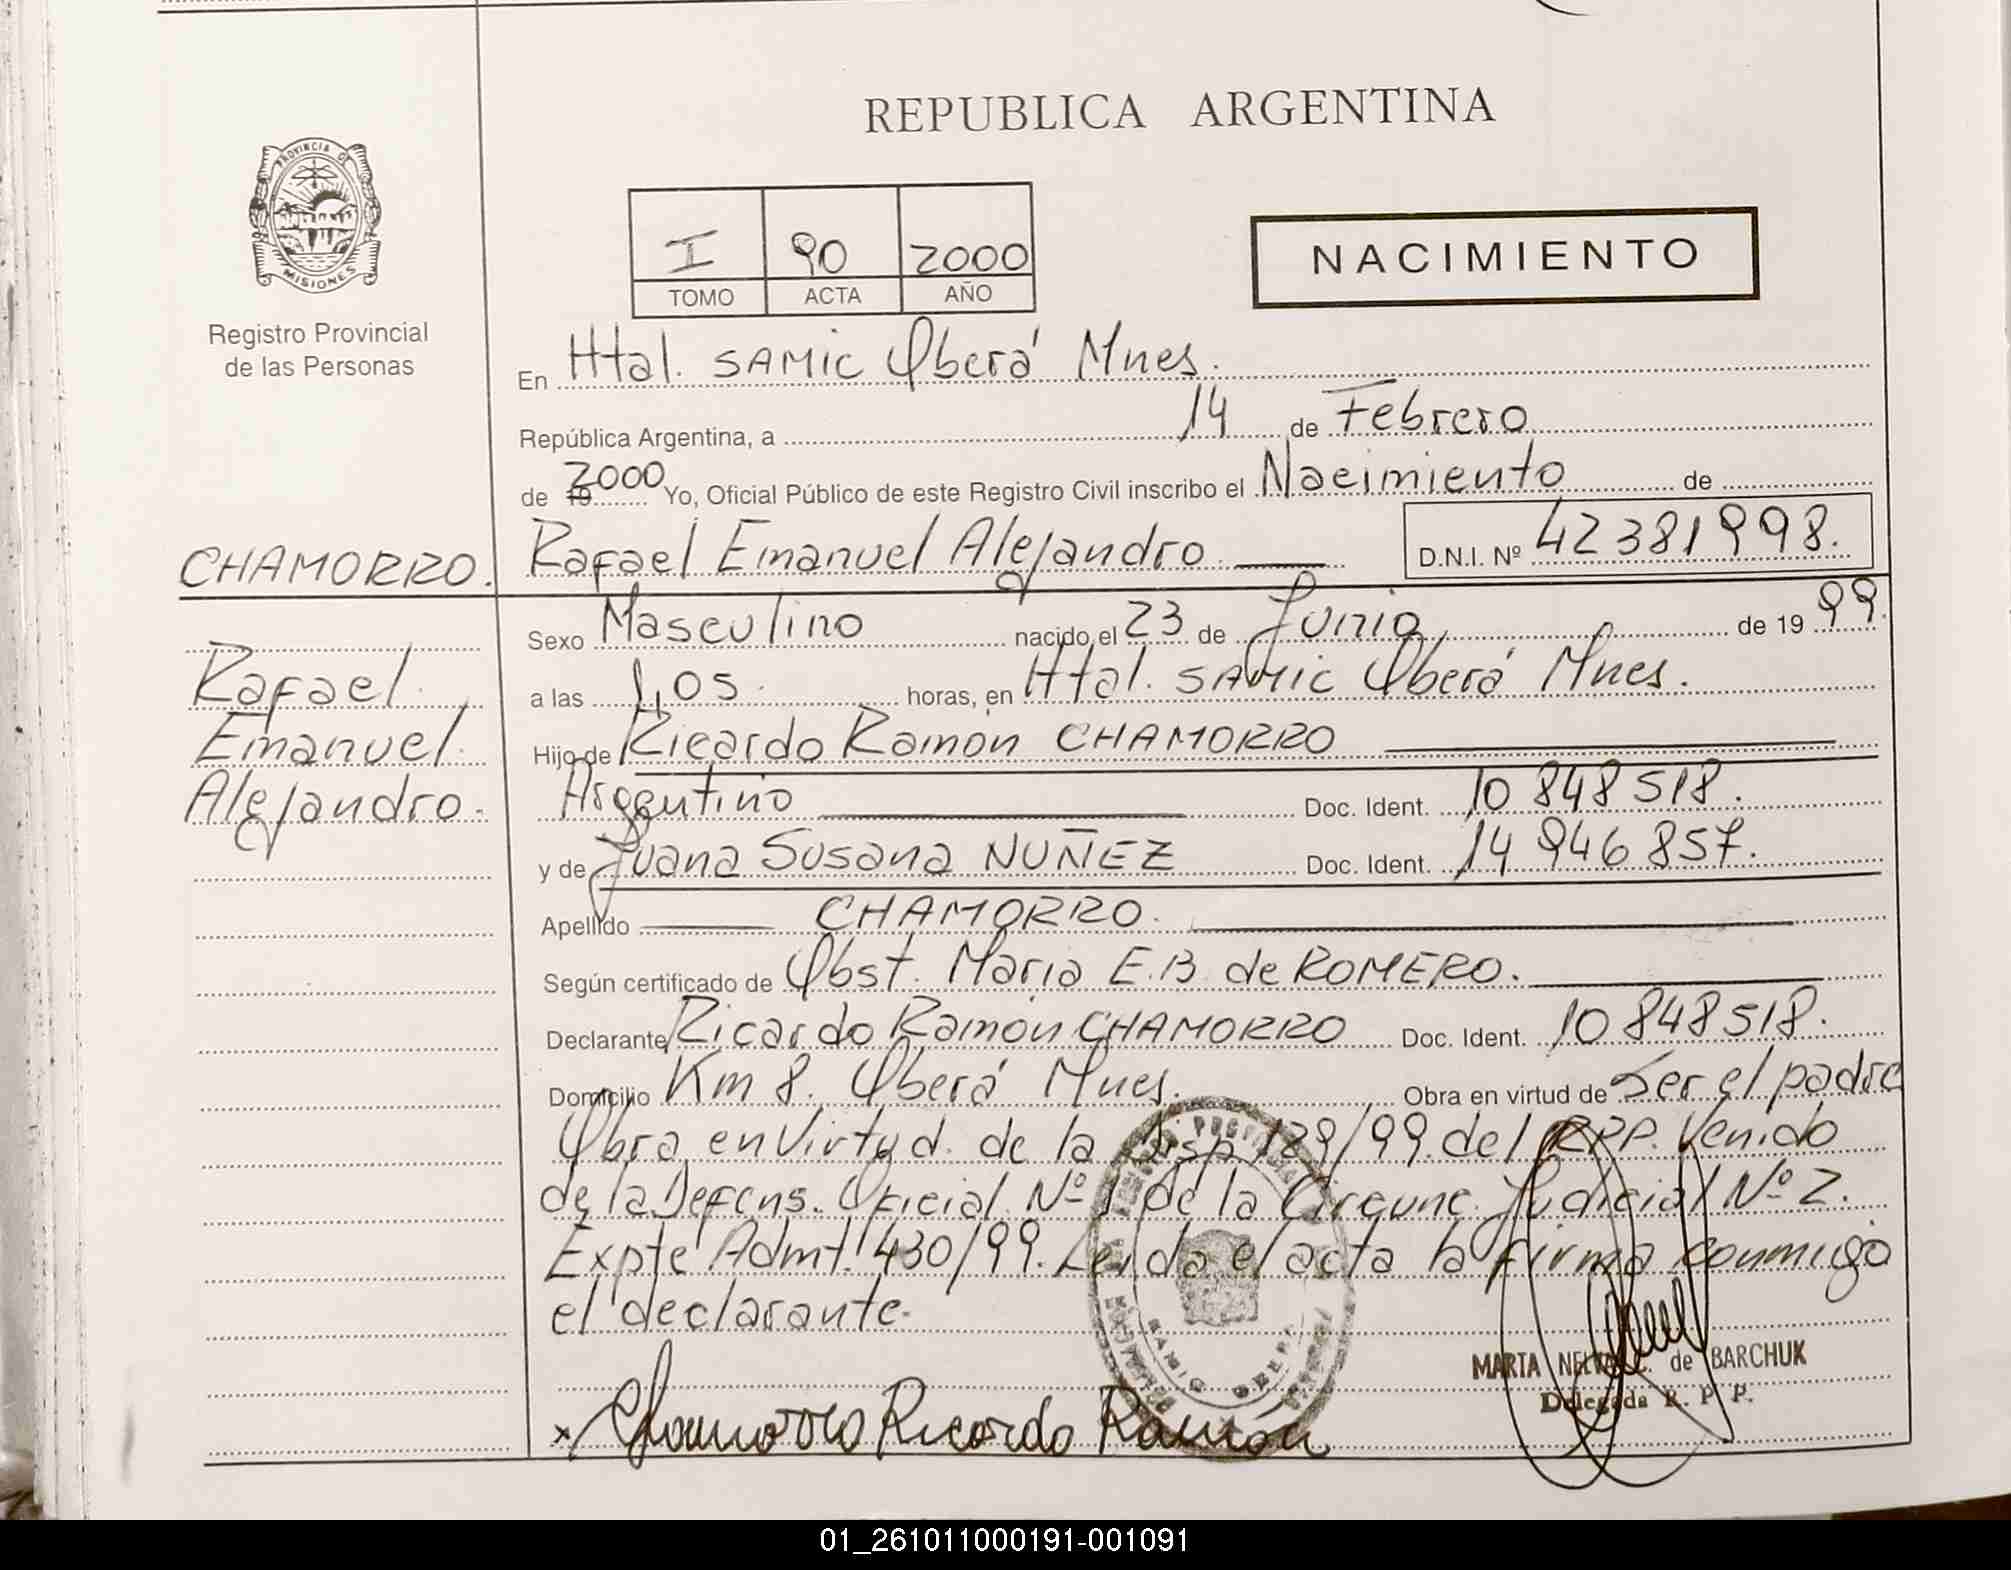 REPUBLICA ARGENTINA
PROVINCIA DE
MISIONES
Registro Provincial
de las Personas
I 90 2000
TOMO ACTA AÑO
NACIMIENTO
En Htal. SAMIC Oberá Mnes.
República Argentina, a 14 de Febrero
de 19 2000 Yo, Oficial Público de este Registro Civil inscribo el Nacimiento de
CHAMORRO. Rafael Emanuel Alejandro D.N.I. Nº 42381998.
Sexo Masculino nacido el 23 de Junio de 19 99.
Rafael a las 1,05 horas, en Htal. SAMIC Oberá Mnes.
Emanuel Hijo de Ricardo Ramón CHAMORRO
Alejandro. Argentino Doc. Ident. 10 848 518.
y de Juana Susana NUÑEZ Doc. Ident. 14 946 857.
Apellido CHAMORRO.
Según certificado de Obst. Maria E.B. de ROMERO.
Declarante Ricardo Ramón CHAMORRO Doc. Ident. 10 848 518.
Domicilio Km 8. Oberá Mnes. Obra en virtud de Ser el padre
Obra en Virtud de la Disp. 129/99. del RPP. Venido
de la Defens. Oficial Nº 1 de la Circunc. Judicial Nº 2.
Expte Admt. 430/99. Leída el acta la firma conmigo
el declarante.
MARTA de BARCHUK
Delegada R. P. P.
x Chamorro Ricardo Ramón
SAMIC OBERA
01_261011000191-001091